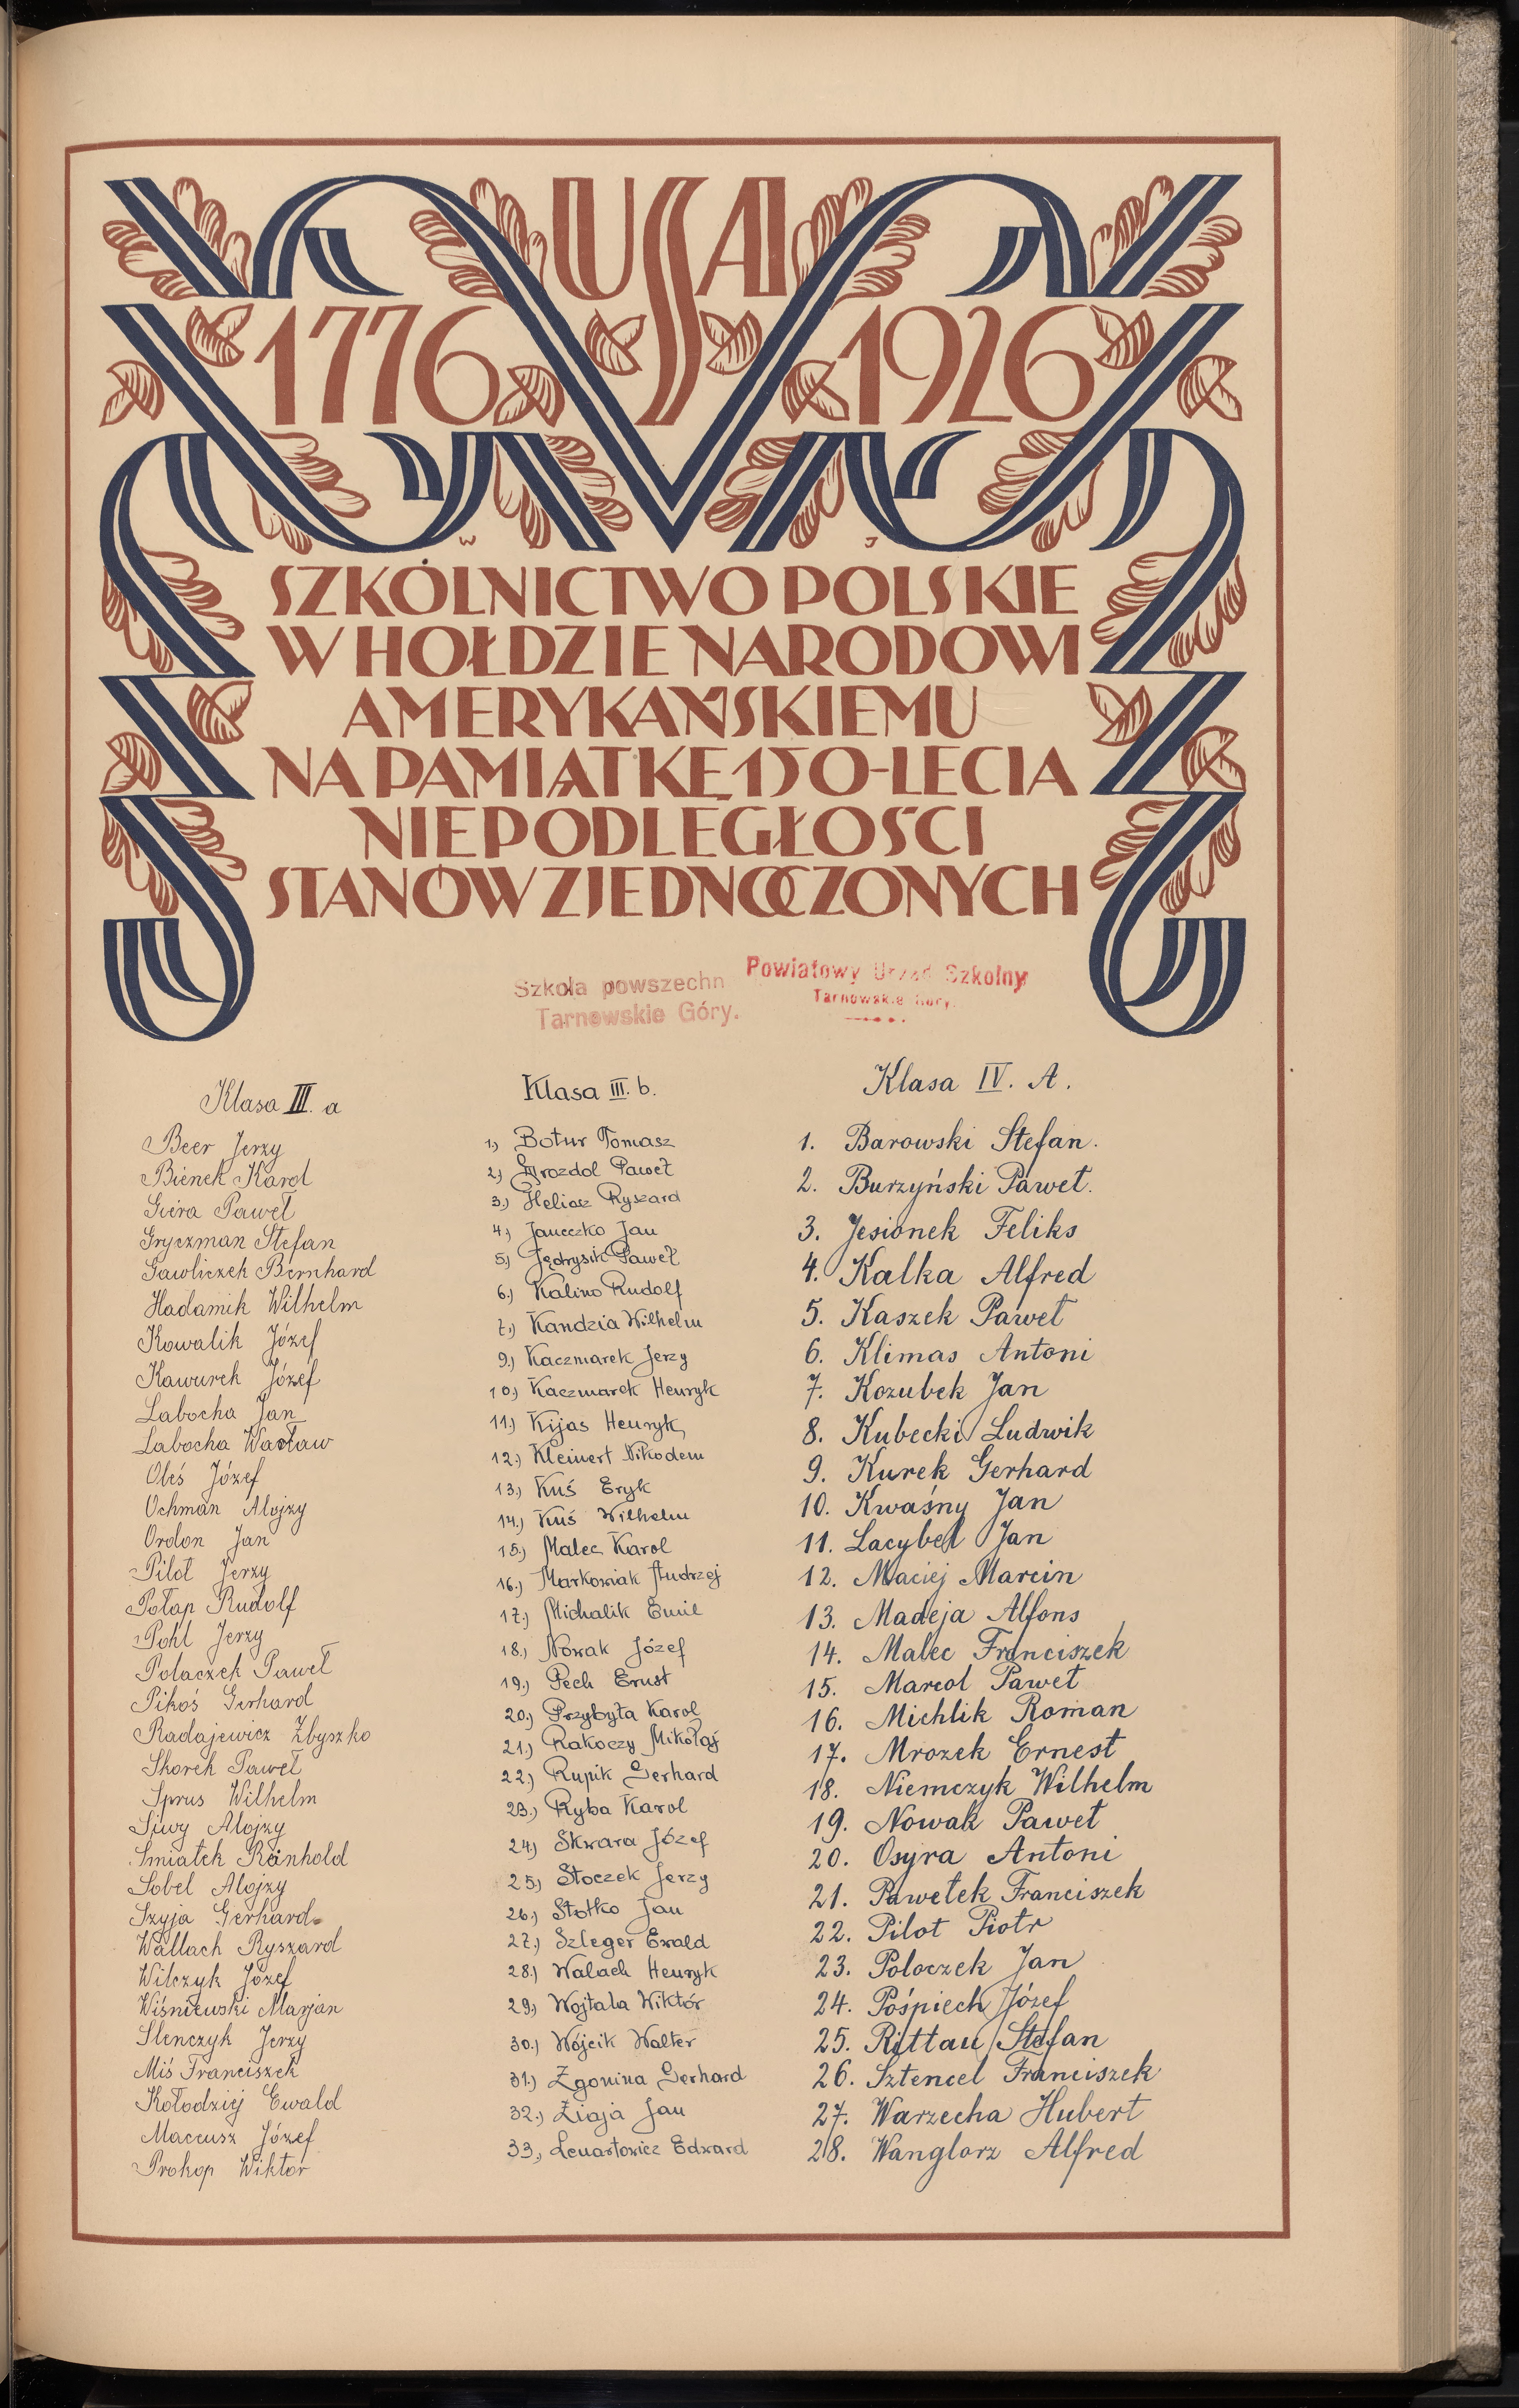 USA
1776 1926
W J
SZKOLNICTWO POLSKIE
W HOŁDZIE NARODOWI
AMERYKAŃSKIEMU
NA PAMIĄTKĘ 150-LECIA
NIEPODLEGŁOŚCI
STANÓW ZJEDNOCZONYCH
Szkoła powszechn
Tarnowskie Góry.
Powiatowy Urząd Szkolny
Tarnowskie Góry.
Klasa III. a
Beer Jerzy
Bienek Karol
Giera Paweł
Gryczman Stefan
Gawliczek Bernhard
Hadamik Wilhelm
Kowalik Józef
Kawurek Józef
Labocha Jan
Labocha Wacław
Obiś Józef
Ochman Alojzy
Ordon Jan
Pilot Jerzy
Połap Rudolf
Pohl Jerzy
Polaczek Paweł
Pikoś Gerhard
Radajewicz Zbyszko
Skorek Paweł
Sprus Wilhelm
Siwy Alojzy
Smiatek Ränhold
Sobel Alojzy
Szyja Gerhard
Wallach Ryszard
Wilczyk Józef
Wiśniewski Marjan
Slenczyk Jerzy
Miś Franciszek
Kołodziej Ewald
Maceusz Józef
Prokop Wiktor
Klasa III. b.
1.) Botur Tomasz
2.) Grozdol Paweł
3.) Heliosz Ryszard
4.) Janeczko Jan
5.) Jędrysik Paweł
6.) Kalino Rudolf
7.) Kandzia Wilhelm
9.) Kaczmarek Jerzy
10.) Kaczmarek Henryk
11.) Kijas Henryk
12.) Kleinert Nikodem
13.) Kuś Eryk
14.) Kuś Wilhelm
15.) Malec Karol
16.) Markowiak Andrzej
17.) Michalik Emil
18.) Nowak Józef
19.) Pech Ernst
20.) Przybyła Karol
21.) Rakoczy Mikołaj
22.) Rupik Gerhard
23.) Ryba Karol
24.) Skwara Józef
25.) Stoczek Jerzy
26.) Stotko Jan
27.) Szleger Ewald
28.) Walach Henryk
29.) Wojtala Wiktór
30.) Wójcik Walter
31.) Zgonina Gerhard
32.) Ziaja Jan
33.) Lenartowicz Edward
Klasa IV. A.
1. Barowski Stefan.
2. Burzyński Paweł.
3. Jesionek Feliks
4. Kalka Alfred
5. Kaszek Paweł
6. Klimas Antoni
7. Kozubek Jan
8. Kubecki Ludwik
9. Kurek Gerhard
10. Kwaśny Jan
11. Lacybel Jan
12. Maciej Marcin
13. Madeja Alfons
14. Malec Franciszek
15. Marcol Paweł
16. Michlik Roman
17. Mrozek Ernest
18. Niemczyk Wilhelm
19. Nowak Paweł
20. Osyra Antoni
21. Pawełek Franciszek
22. Pilot Piotr
23. Poloczek Jan
24. Pośpiech Józef
25. Rittau Stefan
26. Sztencel Franciszek
27. Warzecha Hubert
28. Wanglorz Alfred